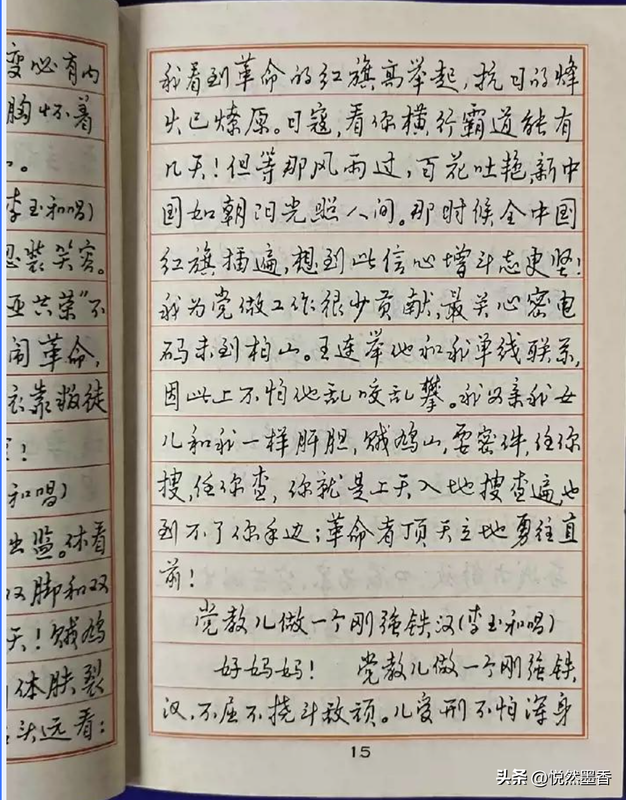 变必有内
胸怀着
。
李玉和唱)
忍装笑容。
亚共荣"不
闹革命,
依靠叛徒
!
和唱)
出监。休看
双脚和双
天!贼鸠
体肤裂
头远看:
我看到革命的红旗高举起,抗日的烽
火已燎原。日寇,看你横行霸道能有
几天!但等那风雨过,百花吐艳,新中
国如朝阳光照人间。那时候全中国
红旗插遍,想到此信心增斗志更坚!
我为党做工作很少贡献,最关心密电
码未到柏山。王连举他和我单线联系,
因此上不怕他乱咬乱攀。我父亲我女
儿和我一样肝胆,贼鸠山,要密件,任你
搜,任你查,你就是上天入地搜查遍也
到不了你手边;革命者顶天立地勇往直
前!
党教儿做一个刚强铁汉(李玉和唱)
好妈妈! 党教儿做一个刚强铁
汉,不屈不挠斗敌顽。儿受刑不怕浑身
15
头条 @悦然墨香